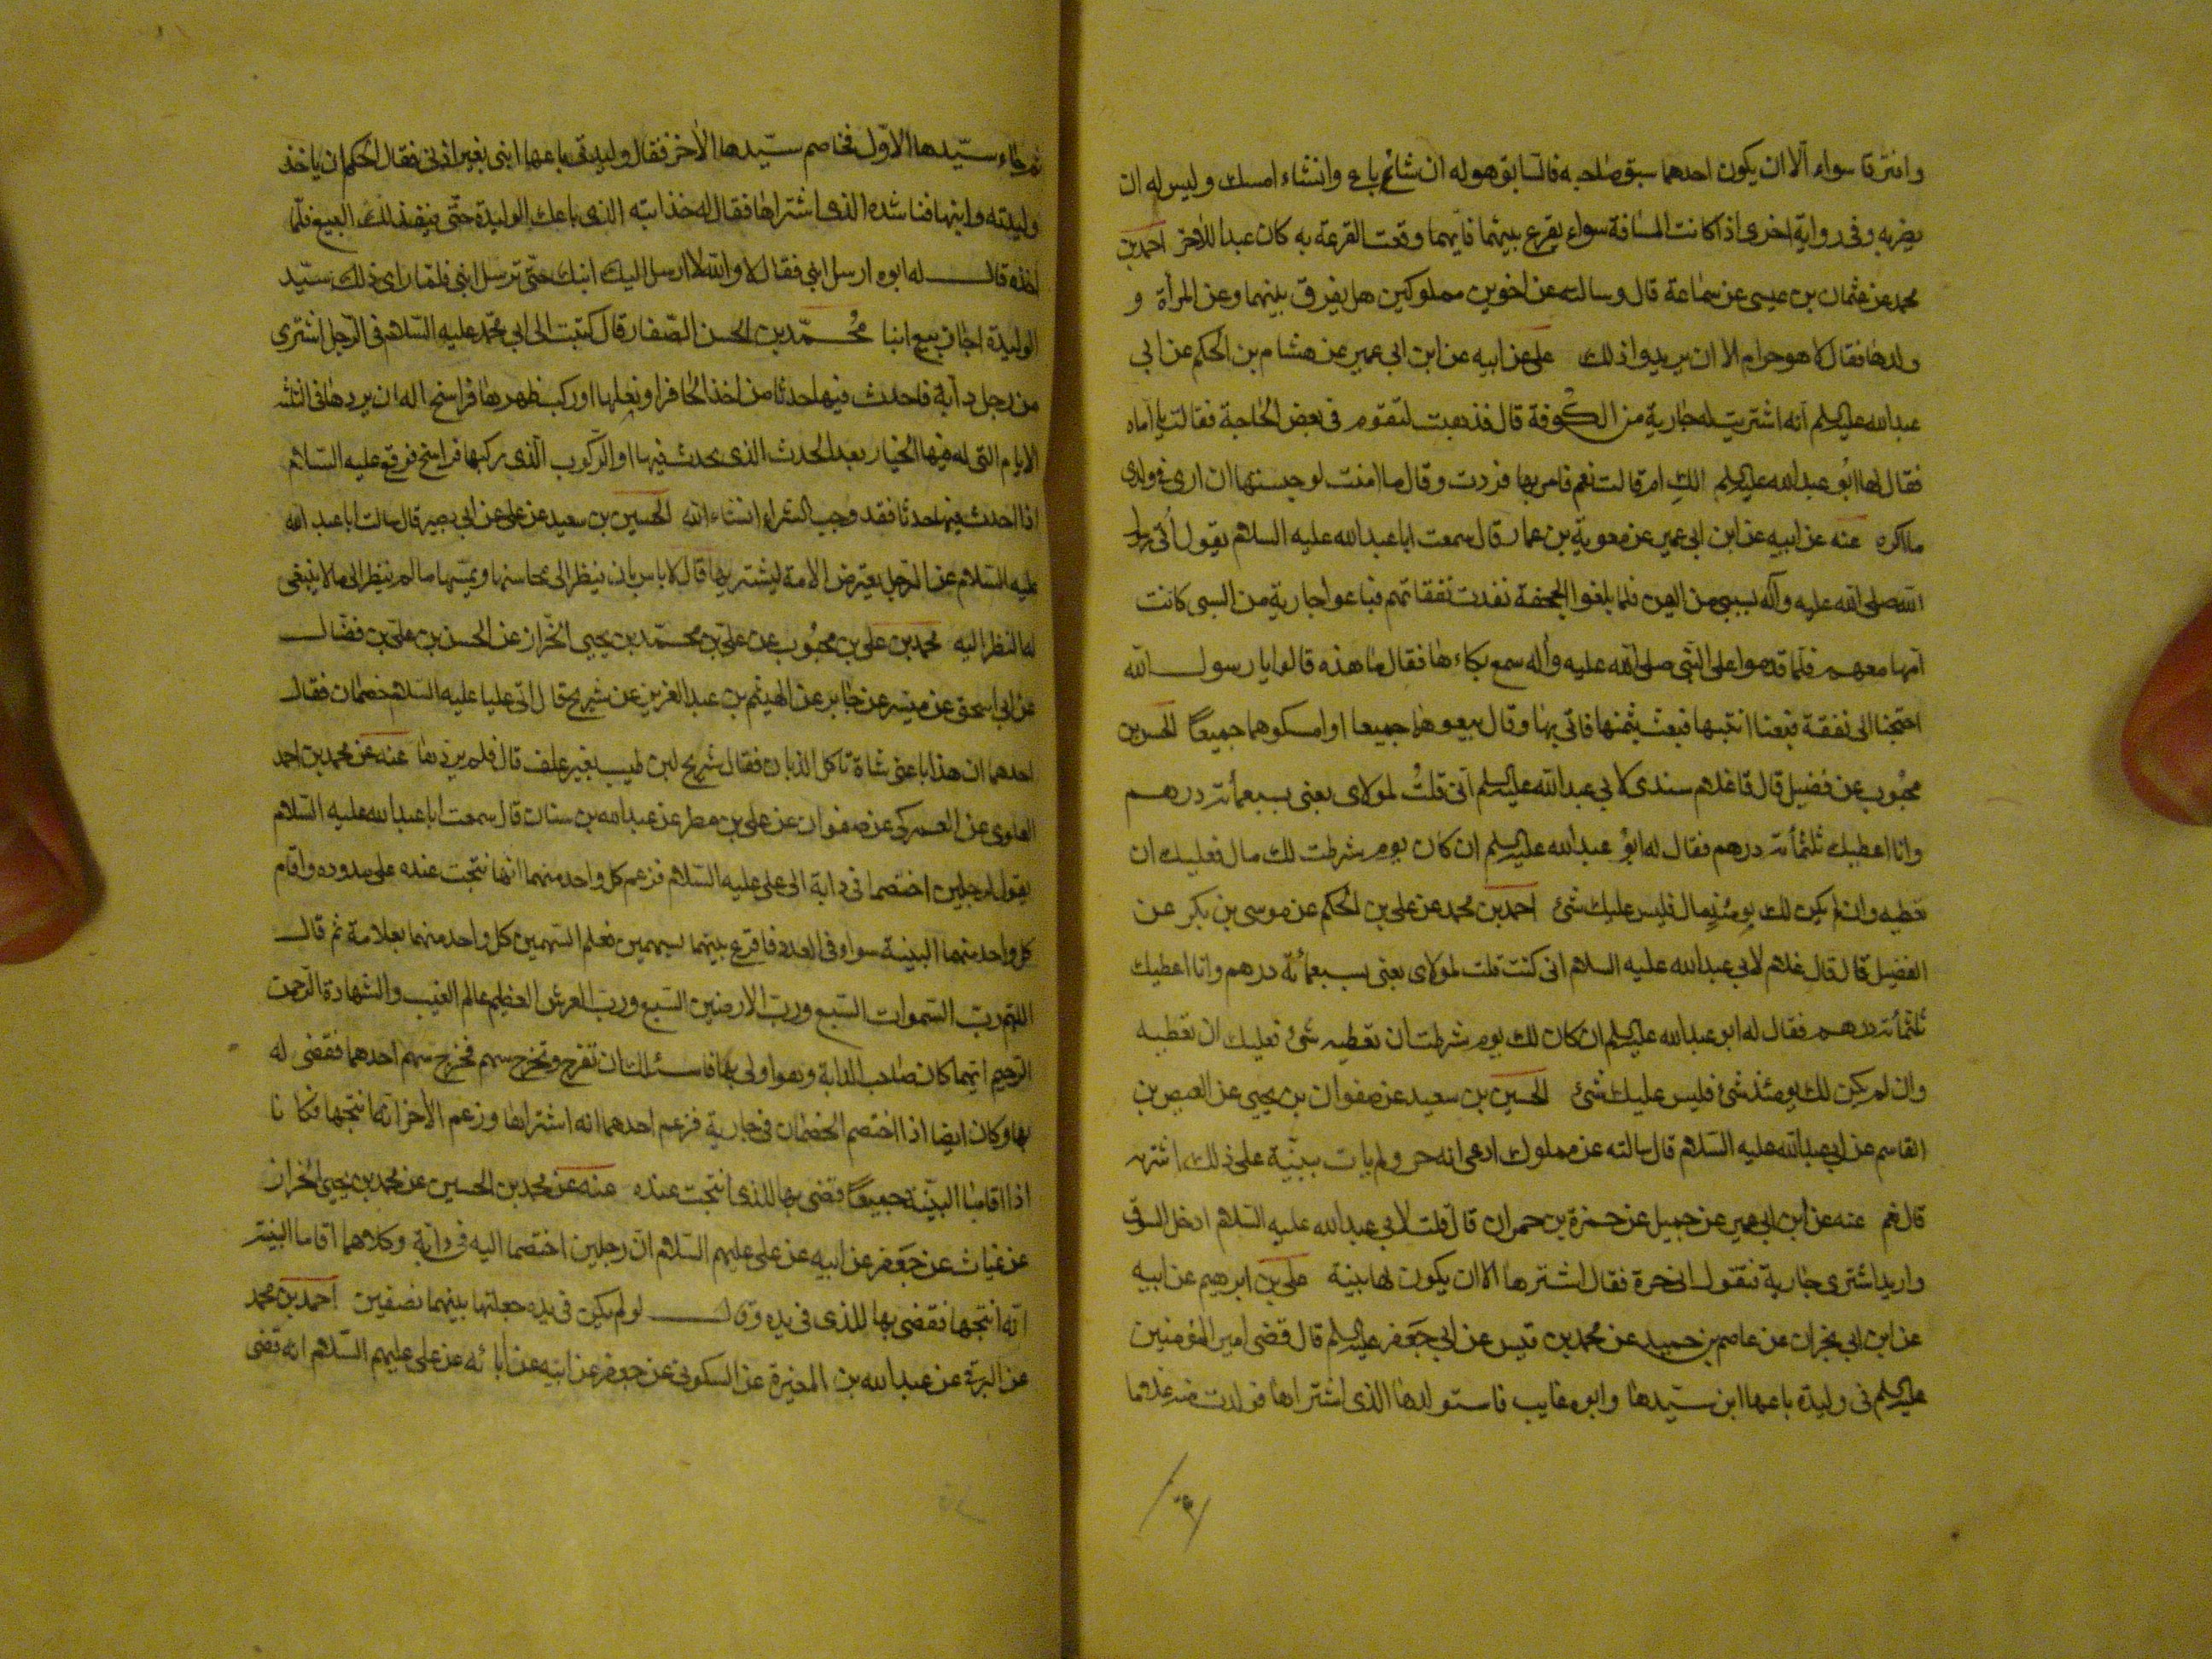 وافترقا سواء الا ان يكون احدهما سبق صاحبه فالسابق هو له ان شاء باع وانشاء امسك وليس له ان
يضربه وفى رواية اخرى اذا كانت المسافة سواء يقرع بينهما فايهما وقعت القرعة به كان عبدا للاخر احمد بن
محمد عن عثمان بن عيسى عن سماعة قال وسالته عن اخوين مملوكين هل يفرق بينهما وعن المرأة و
ولدها فقال لا هو حرام الا ان يريدوا ذلك على عن ابيه عن ابن ابى عمير عن هشام بن الحكم عن ابى
عبد الله عليه السلم انه اشتريت له جارية من الكوفة قال فذهبت لتقوم فى بعض الحاجة فقالت يا اماه
فقال لها ابو عبد الله عليه السلم الك ام قالت نعم فامر بها فردت وقال ما امنت لو حبستها ان ارى فى ولدى
ما اكره عنه عن ابيه عن ابن ابى عمير عن معوية بن عمار قال سمعت ابا عبد الله عليه السلام يقول اتى رسول
الله صلى الله عليه وآله بسبى من اليمن فلما بلغوا الجحفة نفدت نفقاتهم فباعوا جارية من السبى كانت
امها معهم فلما قدموا على النبى صلى الله عليه وآله سمع بكاءها فقال ما هذه قالوا يا رسول الله
احتجنا الى نفقة فبعنا ابنتها فبعث بثمنها فاتى بها وقال بيعوهما جميعا او امسكوهما جميعا الحسن بن
محبوب عن فضيل قال قال غلام سندى لابى عبد الله عليه السلم انى قلت لمولاى بعنى بسبعمائة درهم
وانا اعطيك ثلثمائة درهم فقال له ابو عبد الله عليه السلم ان كان يوم شرطت لك مال فعليك ان
تعطيه وان لم يكن لك يومئذ مال فليس عليك شئ احمد بن محمد عن على بن الحكم عن موسى بن بكر عن
الفضيل قال قال غلام لابى عبد الله عليه السلام انى كنت قلت لمولاى بعنى بسبعمائة درهم وانا اعطيك
ثلثمائة درهم فقال له ابو عبد الله عليه السلم ان كان لك يوم شرطت ان تعطيه شئ فعليك ان تعطيه
وان لم يكن لك يومئذ شئ فليس عليك شئ الحسين بن سعيد عن صفوان بن يحيى عن العيص بن
القاسم عن ابى عبد الله عليه السلام قال سالته عن مملوك ادعى انه حر ولم يات ببينة على ذلك اشتريه
قال نعم عنه عن ابن ابى عمير عن جميل عن حمزة بن حمران قال قلت لابى عبد الله عليه السلام ادخل السوق
واريد اشترى جارية فتقول انى حرة فقال اشترها الا ان يكون لها بينة على بن ابرهيم عن ابيه
عن ابن ابى نجران عن عاصم بن حميد عن محمد بن قيس عن ابى جعفر عليه السلم قال قضى امير المؤمنين
عليه السلم فى وليدة باعها ابن سيدها وابوه غايب فاستولدها الذى اشتراها فولدت منه غلاما
ثم جاء سيدها الاول فخاصم سيدها الاخر فقال وليدتى باعها ابنى بغير اذنى فقال الحكم ان ياخذ
وليدته وابنها فناشده الذى اشتراها فقال له خذ ابنه الذى باعك الوليدة حتى ينفذ لك البيع فلما
اخذه قال له ابوه ارسل ابنى فقال لا والله لا ارسل اليك ابنك حتى ترسل ابنى فلما راى ذلك سيد
الوليدة اجاز بيع ابنه محمد بن الحسن الصفار قال كتبت الى ابى محمد عليه السلام فى الرجل اشترى
من رجل دابة فاحدث فيها حدثا من اخذ الحافر او نعلها او ركب ظهرها فراسخ اله ان يردها فى الثلثة
الايام التى له فيها الخيار بعد الحدث الذى يحدث فيها او الركوب الذى ركبها فراسخ فوقع عليه السلام
اذا احدث فيها حدثا فقد وجب الشراء انشاء الله الحسين بن سعيد عن على عن ابى بصير قال سالت ابا عبد الله
عليه السلام عن الرجل يعترض الامة ليشتريها قال لا باس بان ينظر الى محاسنها ويمسها ما لم ينظر الى ما لا ينبغى
له النظر اليه محمد بن على بن محبوب عن على بن محمد بن يحيى الخزاز عن الحسن بن على بن فضال
عن ابى اسحق عن ميسر عن جابر عن الهيثم بن عبد العزيز عن شريح قال اتى عليا عليه السلام خصمان فقال
احدهما ان هذا باعنى شاة تاكل الذبان فقال شريح لبن طيب بغير علف قال فلم يردها عنه عن محمد بن احمد
العلوى عن العمركى عن صفوان عن على بن مطر عن عبد الله بن سنان قال سمعت ابا عبد الله عليه السلام
يقول ان رجلين اختصما فى دابة الى على عليه السلام فزعم كل واحد منهما انها نتجت عنده على مدوده واقام
كل واحد منهما البينة سواء فى العدد فاقرع بينهما سهمين فعلم السهمين كل واحد منهما بعلامة ثم قال
اللهم رب السموات السبع ورب الارضين السبع ورب العرش العظيم عالم الغيب والشهادة الرحمن
الرحيم ايهما كان صاحب الدابة وهو اولى بها فاسئلك ان تقرع وتخرج سهمه فخرج سهم احدهما فقضى له
بها وكان ايضا اذا اختصم الخصمان فى جارية فزعم احدهما انه اشتراها وزعم الاخر انه انتجها فكانا
اذا اقاما البينة جميعا قضى بها للذى انتجت عنده عنه عن محمد بن الحسين عن محمد بن يحيى الخزاز
عن غياث عن جعفر عن ابيه عن على عليهم السلام ان رجلين اختصما اليه فى دابة وكلاهما اقاما البينة
انه انتجها فقضى بها للذى فى يده وقال لو لم يكن فى يده جعلتها بينهما نصفين احمد بن محمد
عن البرقى عن عبد الله بن المغيرة عن السكونى عن جعفر عن ابيه عن ابائه عن على عليهم السلام انه قضى